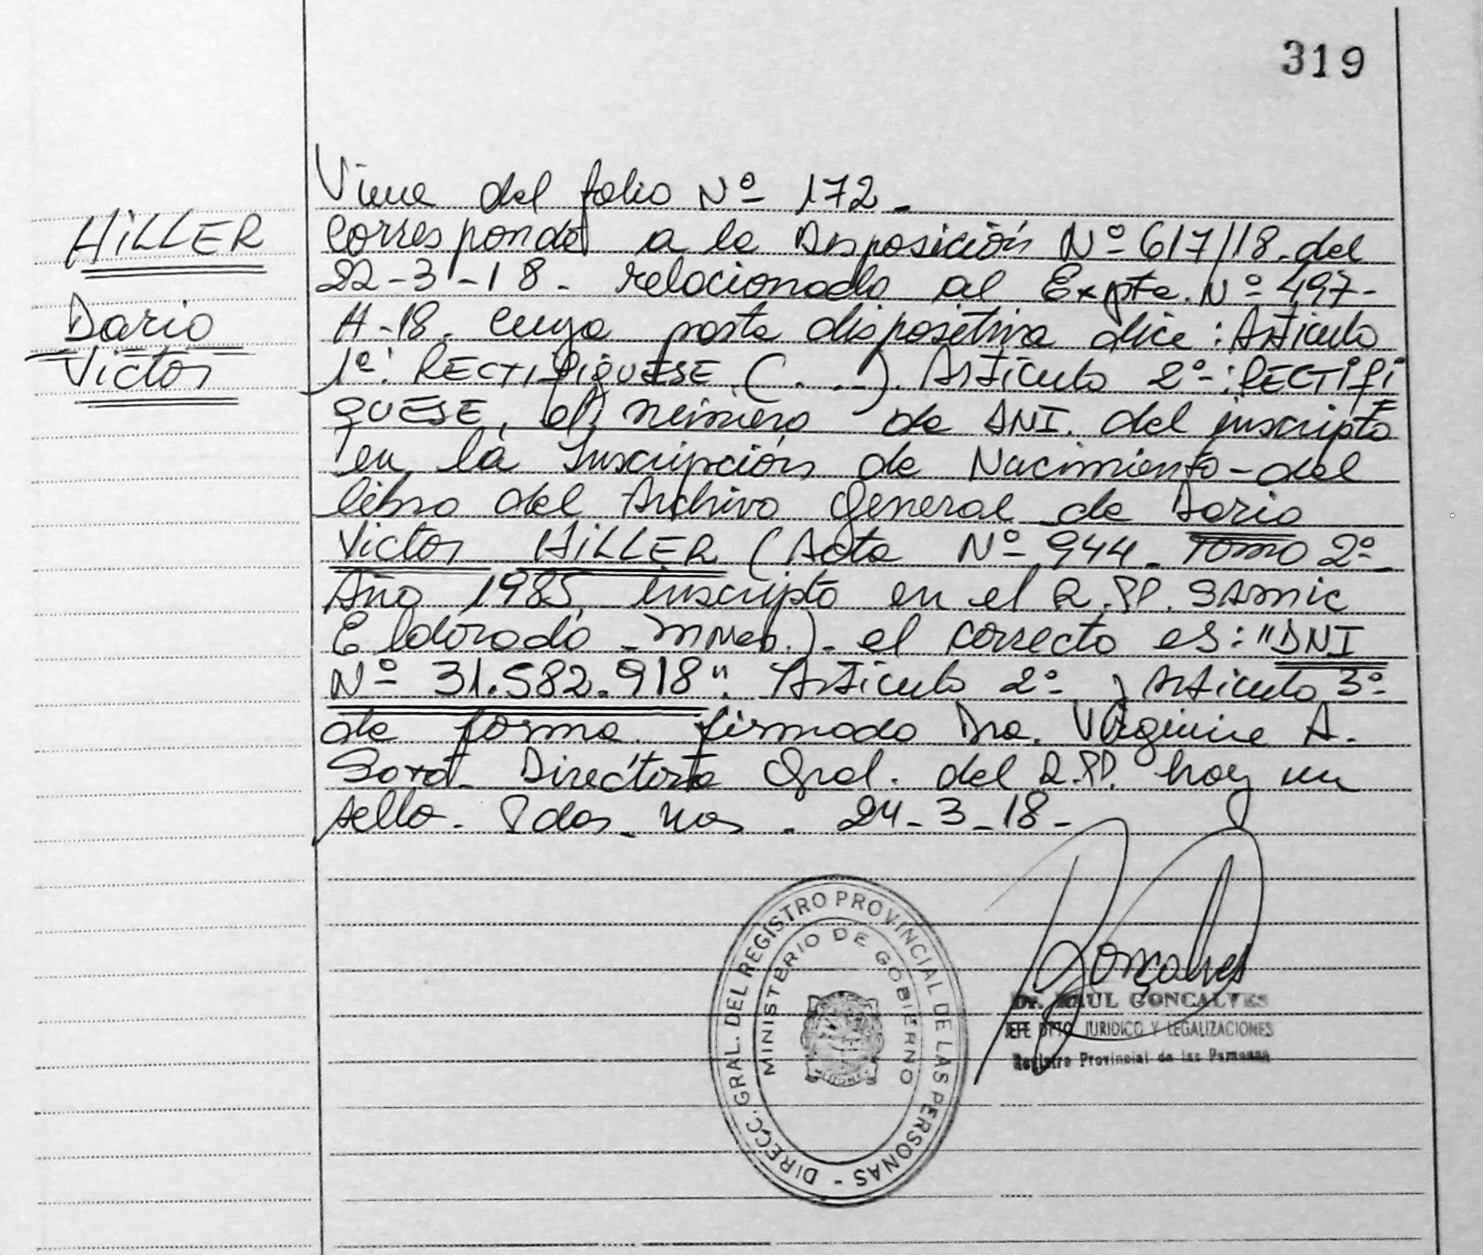 319
HiLLER
Dario
Victor
Viene del folio Nº 172.-
Corresponde a la Disposición Nº 617/18. del
22-3-18. relacionado al Expte. Nº 497-
H-18. cuya parte dispositiva dice: Artículo
1º: RECTIFIQUESE (. ...). Artículo 2º-: RECTIFI
QUESE, el número de DNI. del inscripto
en la Inscripción de Nacimiento - del
libro del Archivo General de Dario
Victor HiLLER (Acta Nº 944. Tomo 2º-
Año 1985, inscripto en el R.PP. SAmic
Eldorado - Mnes.). el correcto es: "DNI
Nº 31.582.918". Artículo 2º y Artículo 3º-
de forma. firmado Dra. Virginia A.
Directora Gral. del R.PP. hay un
sello. Pdas. Mnes. 24-3-18-
DIRECC. GRAL. DEL REGISTRO PROVINCIAL DE LAS PERSONAS -
MINISTERIO DE GOBIERNO
MISIONES
Goncalves
Dr. RAUL GONCALVES
JEFE DPTO. JURIDICO Y LEGALIZACIONES
Registro Provincial de las Personas